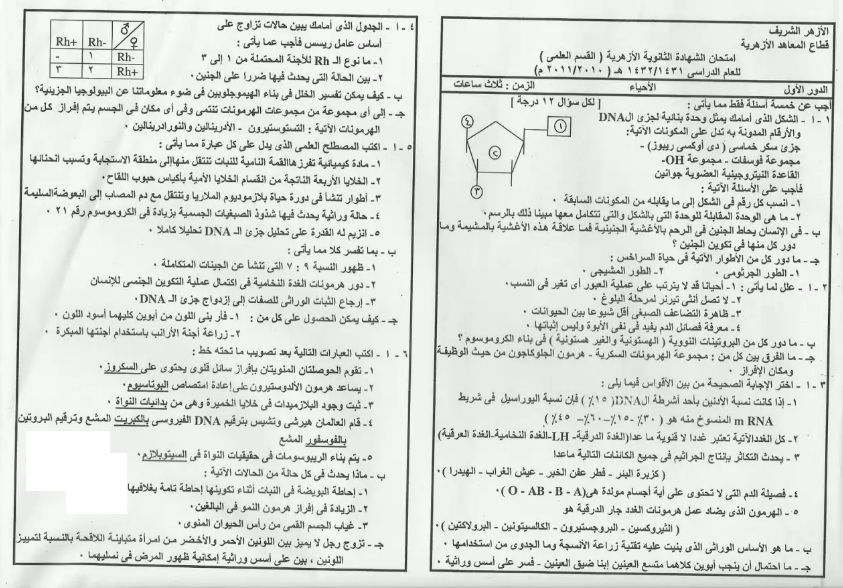 الأزهر الشريف
قطاع المعاهد الأزهرية
امتحان الشهادة الثانوية الأزهرية ( القسم العلمى )
للعام الدراسى ١٤٣٢/١٤٣١ هـ ( ٢٠١١/٢٠١٠ م )
الدور الأول الأحياء الزمن : ثلاث ساعات
أجب عن خمسة أسئلة فقط مما يأتى : [ لكل سؤال ١٢ درجة ]
١ - أ - الشكل الذى أمامك يمثل وحدة بنائية لجزئ الـDNA
والأرقام المدونة به تدل على المكونات الآتية:
جزئ سكر خماسى ( دى أوكسى ريبوز) -
مجموعة فوسفات - مجموعة OH-
القاعدة النيتروجينية العضوية جوانين
فأجب على الأسئلة الآتية :
١
٢
٣
٤
١- انسب كل رقم فى الشكل إلى ما يقابله من المكونات السابقة ٠
٢- ما هى الوحدة المقابلة للوحدة التى بالشكل والتى تتكامل معها مبينا ذلك بالرسم٠
ب - فى الإنسان يحاط الجنين فى الرحم بالأغشية الجنينية فما علاقة هذه الأغشية بالمشيمة وما
دور كل منها فى تكوين الجنين ؟
جـ - ما دور كل من الأطوار الآتية فى حياة السراخس :
١- الطور الجرثومى ٠ ٢- الطور المشيجى ٠
٢ - أ - علل لما يأتى : ١- أحيانا قد لا يترتب على عملية العبور أى تغير فى النسب٠
٢- لا تصل أنثى تيرنر لمرحلة البلوغ ٠
٣- ظاهرة التضاعف الصبغى أقل شيوعا بين الحيوانات ٠
٤- معرفة فصائل الدم يفيد فى نفى الأبوة وليس إثباتها ٠
ب - ما دور كل من البروتينات النووية ( الهستونية والغير هستونية ) فى بناء الكروموسوم ؟
جـ - ما الفرق بين كل من : مجموعة الهرمونات السكرية - هرمون الجلوكاجون من حيث الوظيفة
ومكان الإفراز ٠
٣ - أ - اختر الإجابة الصحيحة من بين الأقواس فيما يلى :
١- إذا كانت نسبة الأدنين بأحد أشرطة الـDNA( ١٥٪ ) فإن نسبة اليوراسيل فى شريط
m RNA المنسوخ منه هو ( ٣٠٪ -١٥٪ -٦٠٪ - ٤٥٪ )
٢- كل الغدد الآتية تعتبر غددا لا قنوية ما عدا(الغدة الدرقية- LH-الغدة النخامية-الغدة العرقية)
٣- يحدث التكاثر بإنتاج الجراثيم فى جميع الكائنات التالية ماعدا
( كزبرة البئر - فطر عفن الخبز - عيش الغراب - الهيدرا ) ٠
٤- فصيلة الدم التى لا تحتوى على أية أجسام مولدة هى( O - AB - B - A ) ٠
٥- الهرمون الذى يضاد عمل هرمونات الغدد جار الدرقية هو
( الثيروكسين - البروجستيرون - الكالسيتونين - البرولاكتين )٠
ب - ما هو الأساس الوراثى الذى بنيت عليه تقنية زراعة الأنسجة وما الجدوى من استخدامها ٠
جـ - ما احتمال أن ينجب أبوين كلاهما متسع العينين إبنا ضيق العينين - فسر على أسس وراثية ٠
٤ - أ - الجدول الذى أمامك يبين حالات تزاوج على
أساس عامل ريسس فأجب عما يأتى :
Rh+ Rh- ♂ ♀
- ١ Rh-
٣ ٢ Rh+
١- ما نوع الـ Rh للأجنة المحتملة من ١ إلى ٣
٢- بين الحالة التى يحدث فيها ضررا على الجنين ٠
ب - كيف يمكن تفسير الخلل فى بناء الهيموجلوبين فى ضوء معلوماتنا عن البيولوجيا الجزيئية؟
جـ - إلى أى مجموعة من مجموعات الهرمونات تنتمى وفى أى مكان فى الجسم يتم إفراز كل من
الهرمونات الآتية : التستوستيرون - الأدرينالين والنورادرينالين ٠
٥ - أ - اكتب المصطلح العلمى الذى يدل على كل عبارة مما يأتى :
١- مادة كيميائية تفرزها القمة النامية للنبات تنتقل منها إلى منطقة الاستجابة وتسبب انحنائها
٢- الخلايا الأربعة الناتجة من انقسام الخلايا الأمية بأكياس حبوب اللقاح٠
٣- أطوار تنشأ فى دورة حياة بلازموديوم الملاريا وتنتقل مع دم المصاب إلى البعوضة السليمة
٤- حالة وراثية يحدث فيها شذوذ الصبغيات الجسمية بزيادة فى الكروموسوم رقم ٢١ ٠
٥- انزيم له القدرة على تحليل جزئ الـ DNA تحليلا كاملا ٠
ب - بما تفسر كلا مما يأتى :
١- ظهور النسبة ٩ : ٧ التى تنشأ عن الجينات المتكاملة ٠
٢- دور هرمونات الغدة النخامية فى اكتمال عملية التكوين الجنسى للإنسان
٣- إرجاع الثبات الوراثى للصفات إلى إزدواج جزئ الـ DNA٠
جـ - كيف يمكن الحصول على كل من : ١- فأر بنى اللون من أبوين كليهما أسود اللون ٠
٢- زراعة أجنة الأرانب باستخدام أجنتها المبكرة ٠
٦ - أ - اكتب العبارات التالية بعد تصويب ما تحته خط :
١- تقوم الحوصلتان المنويتان بإفراز سائل قلوى يحتوى على السكروز ٠
٢- يساعد هرمون الألدوستيرون على إعادة امتصاص البوتاسيوم ٠
٣- ثبت وجود البلازميدات فى خلايا الخميرة وهى من بدائيات النواة ٠
٤- قام العالمان هيرشى وتشيس بترقيم DNA الفيروسى بالكبريت المشع وترقيم البروتين
بالفوسفور المشع
٥- يتم بناء الريبوسومات فى حقيقيات النواة فى السيتوبلازم ٠
ب - ماذا يحدث فى كل حالة من الحالات الآتية :
١- إحاطة البويضة فى النبات أثناء تكوينها إحاطة تامة بغلافيها
٢- الزيادة فى إفراز هرمون النمو فى البالغين ٠
٣- غياب الجسم القمى من رأس الحيوان المنوى ٠
جـ - تزوج رجل لا يميز بين اللونين الأحمر والأخضر من امرأة متباينة اللاقحة بالنسبة لتمييز
اللونين ، بين على أسس وراثية إمكانية ظهور المرض فى نسليهما ٠